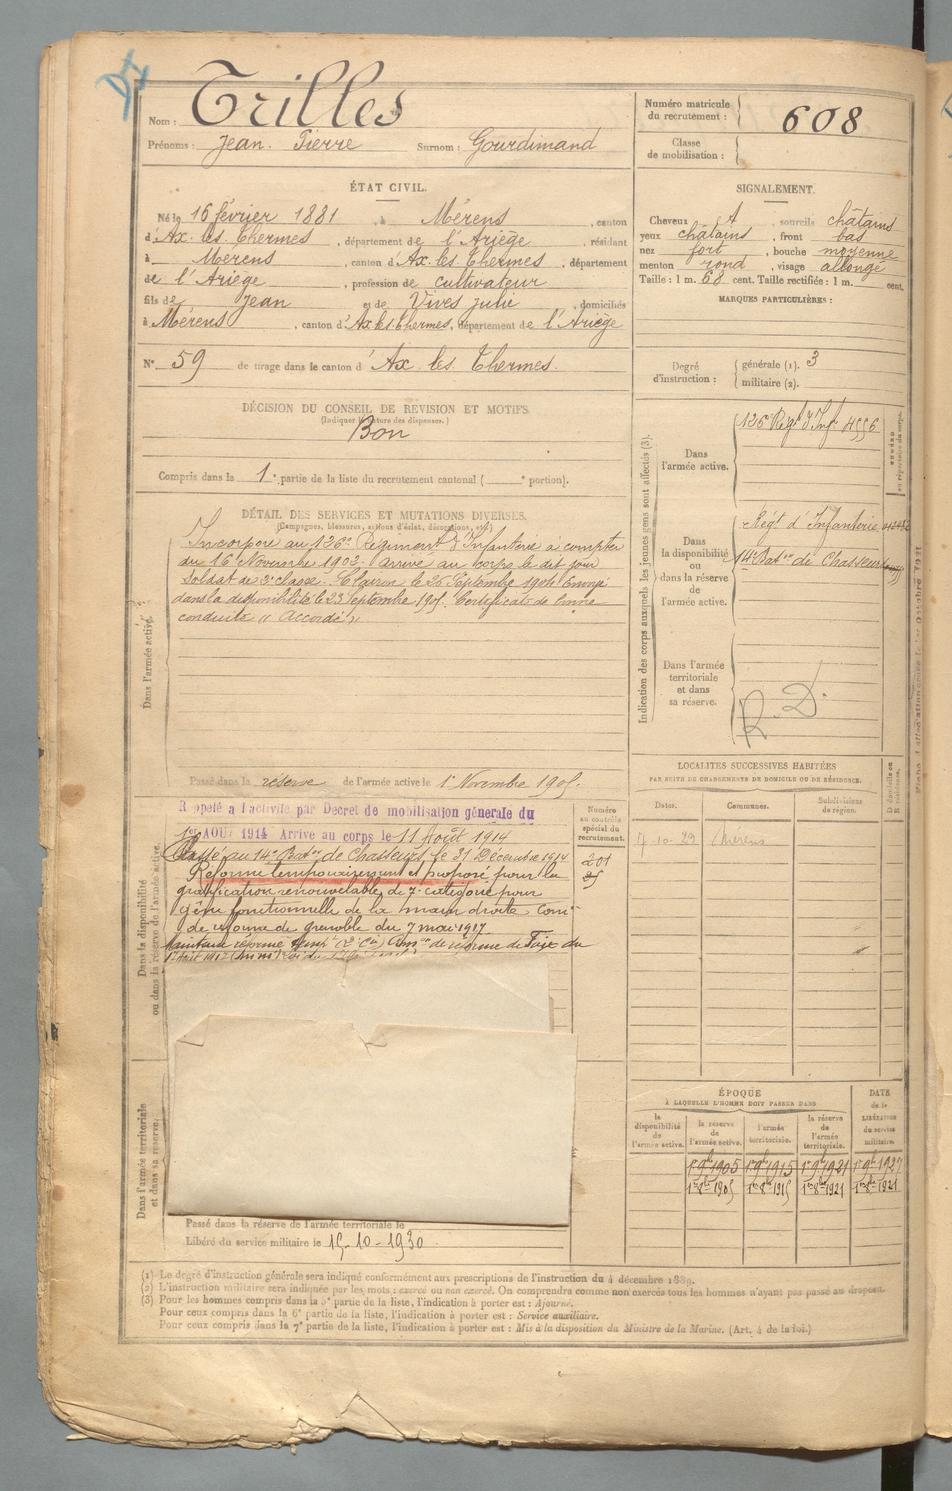 Nom : Trilles
Prénoms : Jean Pierre Surnom : Gourdimand
Numéro matricule du recrutement : 608
Classe de mobilisation :
ÉTAT CIVIL.
Né le 16 février 1881, à Mérens, canton
d'Ax-les-Thermes, département de l'Ariège, résidant
à Mérens, canton d'Ax les Thermes, département
de l'Ariège, profession de cultivateur
fils de Jean et de Vives julie, domiciliés
à Mérens, canton d'Ax les Thermes, département de l'Ariège
N° 59 de tirage dans le canton d'Ax les Thermes.
SIGNALEMENT.
Cheveux , sourcils châtains
yeux châtains, front bas
nez fort, bouche moyenne
menton rond, visage allongé
Taille : 1 m. 68 cent. Taille rectifiée : 1 m. cent.
MARQUES PARTICULIÈRES :
Degré d'instruction : générale (1). 3
militaire (2).
DÉCISION DU CONSEIL DE REVISION ET MOTIFS.
(Indiquer la nature des dispenses.)
Bon
Compris dans la 1e partie de la liste du recrutement cantonal ( e portion).
DÉTAIL DES SERVICES ET MUTATIONS DIVERSES.
(Campagnes, blessures, actions d'éclat, décorations, etc.)
Dans l'armée active.
Incorporé au 126e Régiment d'Infanterie à compter
du 16 Novembre 1902. arrivé au corps le dit jour
Soldat de 2e classe. Clairon le 20 Septembre 1904. Envoyé
dans la disponibilité le 23 Septembre 1905. Certificat de bonne
conduite "Accordé"
Passé dans la réserve de l'armée active le 1er Novembre 1905.
Dans la disponibilité ou dans la réserve de l'armée active.
Rappelé à l'activité par Décret de mobilisation générale du
1er AOUT 1914 Arrivé au corps le 11 Août 1914
Passé au 14e Baton de Chasseurs le 31 Décembre 1914
Réformé temporairement et proposé pour la
gratification renouvelable de 7e catégorie pour
gêne fonctionnelle de la main droite Comon
de réforme de grenoble du 7 mai 1917
Maintenu réformé temp. de réforme de Foix du
Numéro au contrôle spécial du recrutement.
201
Dans l'armée territoriale et dans sa réserve.
Passé dans la réserve de l'armée territoriale le
Libéré du service militaire le 15-10-1930
Indication des corps auxquels les jeunes gens sont affectés (3).
Dans l'armée active.
126e Régt d'Inf. 4556
Dans la disponibilité ou dans la réserve de l'armée active.
Régt d'Infanterie
14e Baton de Chasseurs
Dans l'armée territoriale et dans sa réserve.
R. D.
LOCALITÉS SUCCESSIVES HABITÉES
PAR SUITE DE CHANGEMENTS DE DOMICILE OU DE RÉSIDENCE.
Dates. Communes. Subdivisions de région.
10 29 Mérens
ÉPOQUE
À LAQUELLE L'HOMME DOIT PASSER DANS
DATE de la LIBÉRATION du service militaire.
la disponibilité de l'armée active.
la réserve de l'armée active.
l'armée territoriale.
la réserve de l'armée territoriale.
1er 9bre 1905 1er 9bre 1915 1er 9bre 1921 1er 9bre 1927
(1) Le degré d'instruction générale sera indiqué conformément aux prescriptions de l'instruction du 4 décembre 1889.
(2) L'instruction militaire sera indiquée par les mots : exercé ou non exercé. On comprendra comme non exercés tous les hommes n'ayant pas passé au drapeau.
(3) Pour les hommes compris dans la 5e partie de la liste, l'indication à porter est : Ajourné.
Pour ceux compris dans la 6e partie de la liste, l'indication à porter est : Service auxiliaire.
Pour ceux compris dans la 7e partie de la liste, l'indication à porter est : Mis à la disposition du Ministre de la Marine. (Art. 4 de la loi.)